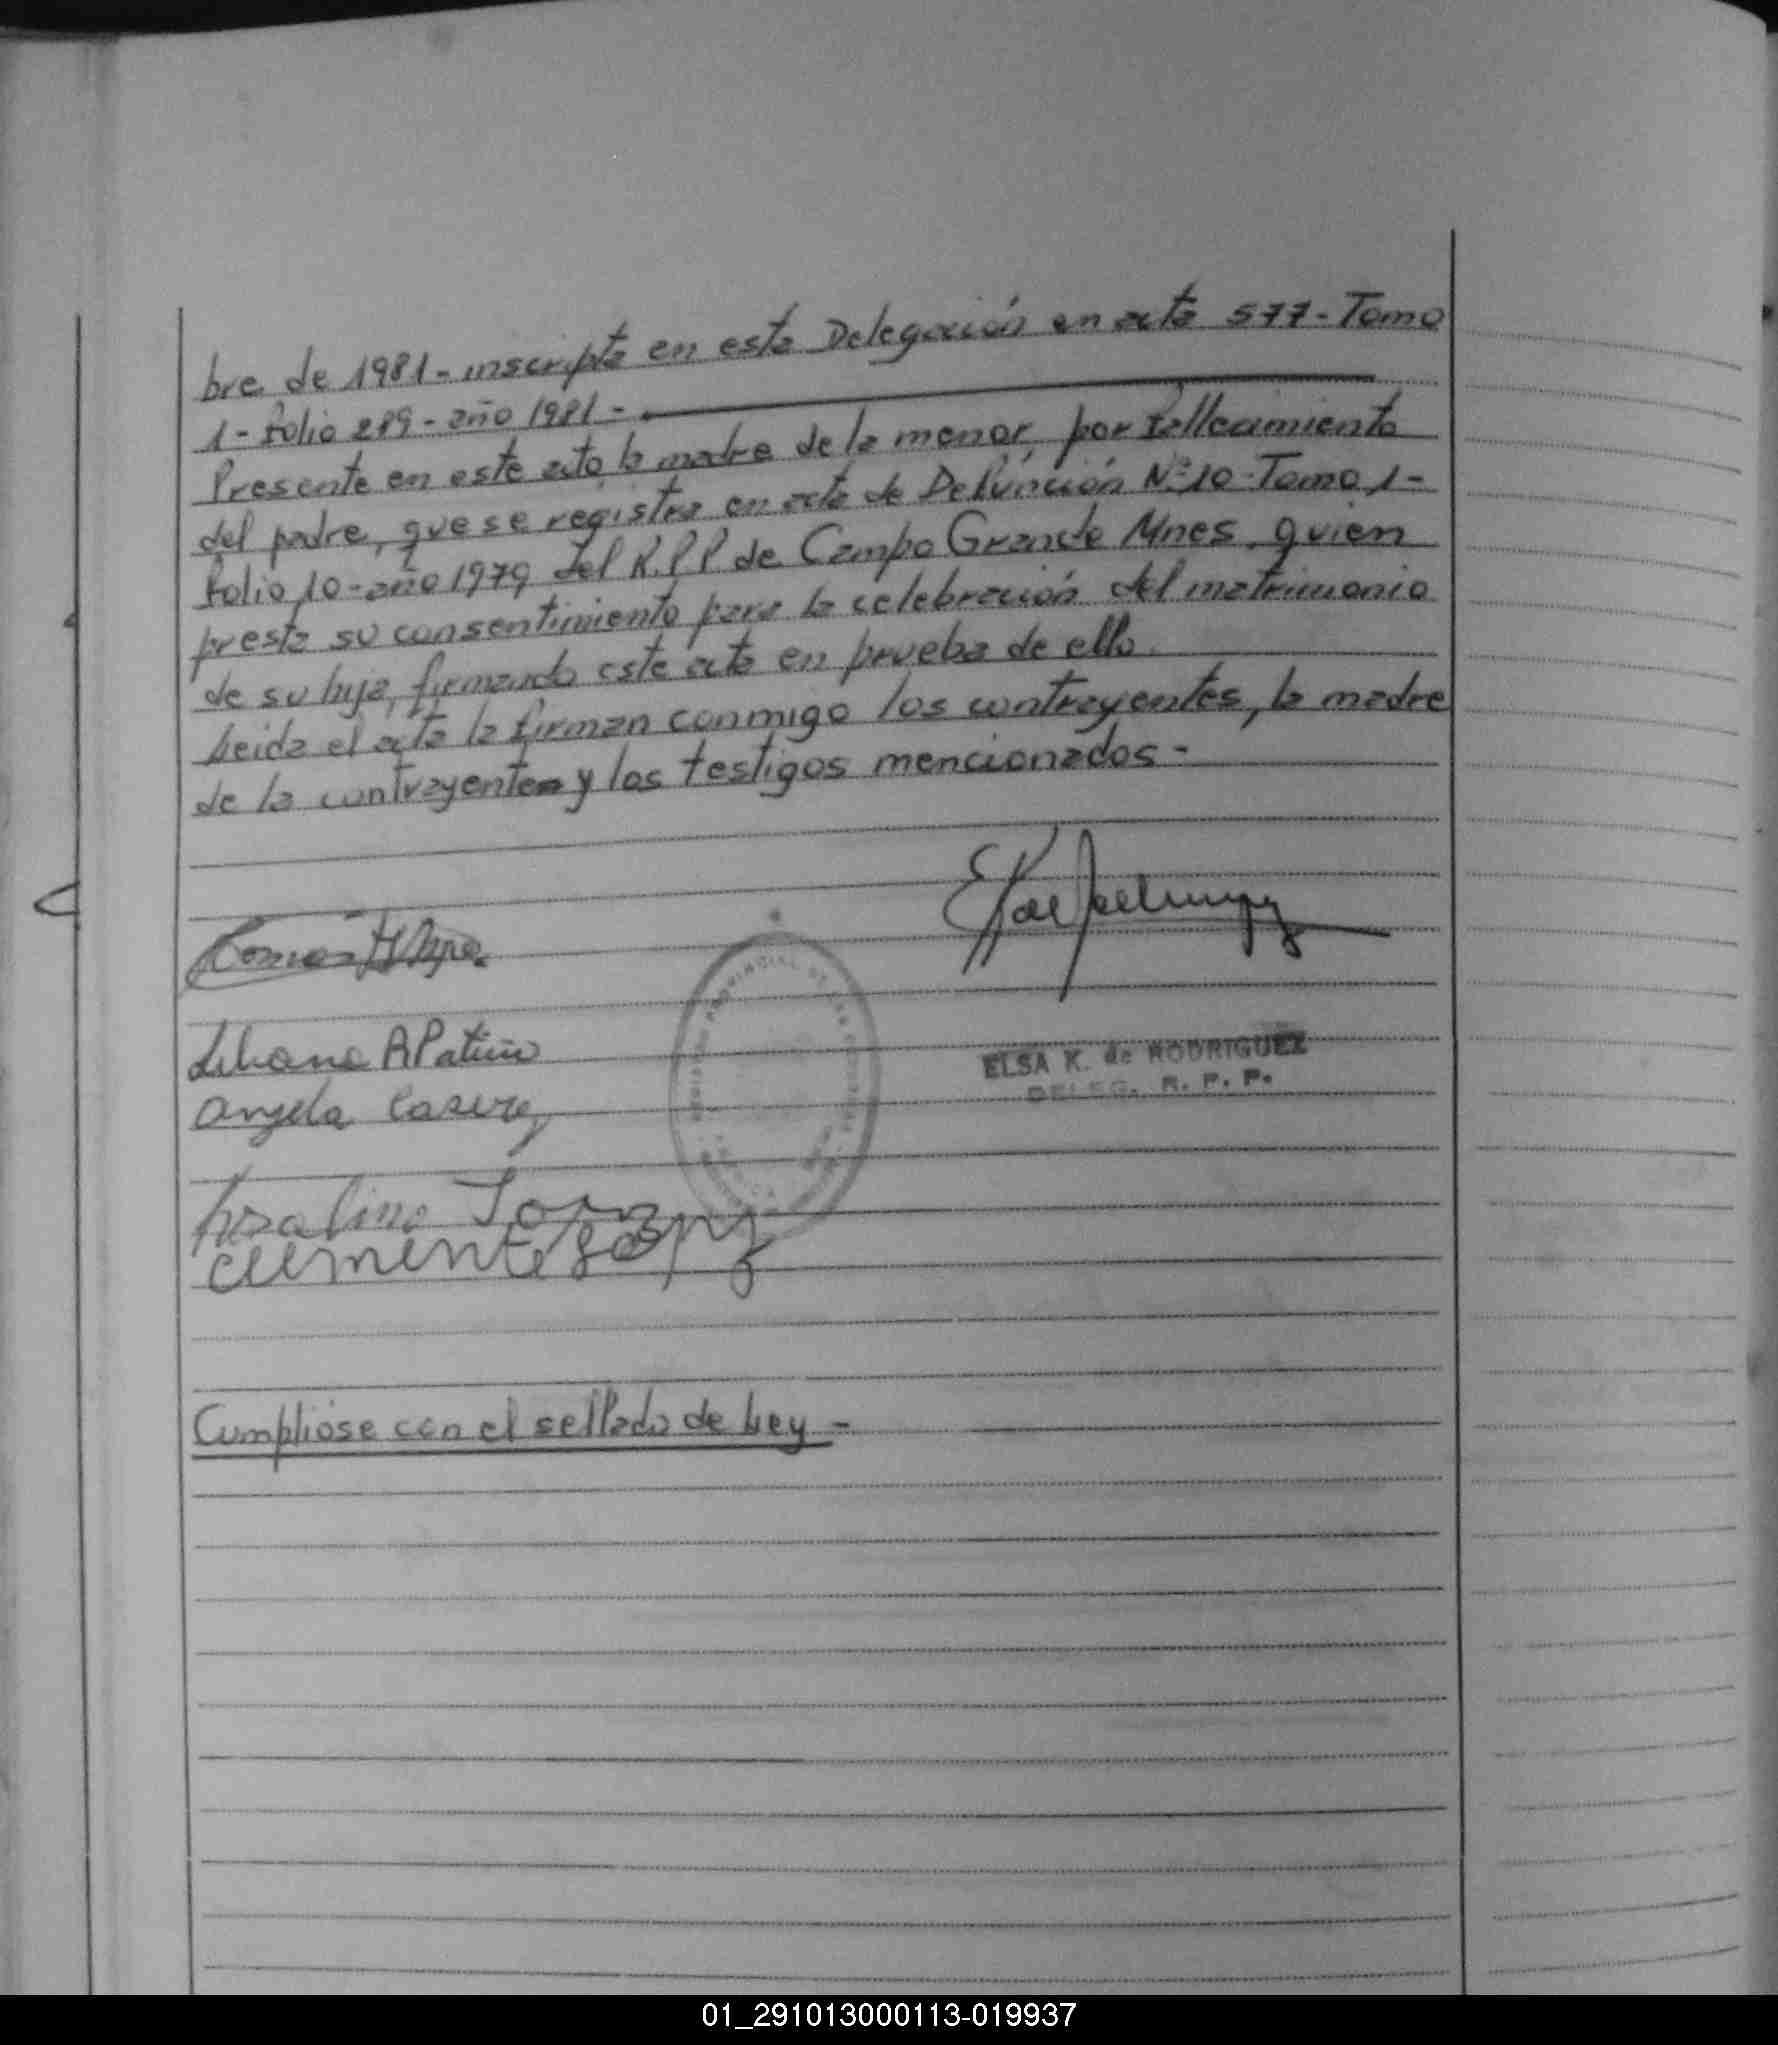 bre de 1981 - inscripta en esta Delegación en acta 577 - Tomo
1 - folio 289 - año 1981 -
Presente en este acto la madre de la menor, por fallecimiento
del padre, que se registra en acta de Defunción Nº 10 - Tomo 1 -
folio 10 - año 1979 del R.P.P de Campo Grande Mnes, quien
presta su consentimiento para la celebración del matrimonio
de su hija, firmando este acta en prueba de ello.
Leida el acta la firman conmigo los contrayentes, la madre
de la contrayente y los testigos mencionados -
Liliana A Patiño
Angela
ELSA K. de RODRIGUEZ
DELEG. R. P. P.
PROVINCIAL DE LAS PERSONAS
Rosalino
clemente
Cumpliose con el sellado de Ley -
01_291013000113-019937